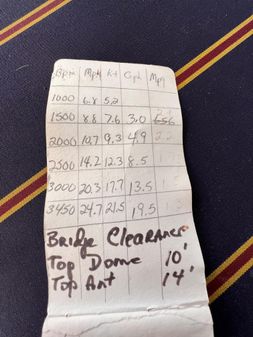 Rpm Mph Kt Gph Mpg
1000 6.8 5.2
1500 8.8 7.6 3.0
2000 10.7 9.3 4.9 2.2
2500 14.2 12.3 8.5
3000 20.3 17.7 13.5
3450 24.7 21.5 19.5
Bridge Clearance
Top Dome 10'
Top Ant 14'